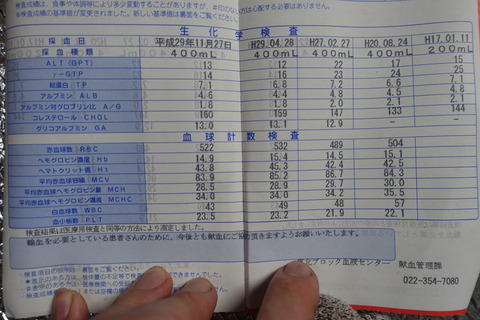 検査成績は、食事や体調等により多少変動することがありますが、#印のない方は心配する必要はありません。
検査成績の基準値が変更されました。新しい基準値は裏面をご覧ください。
生化学検査
採血日 平成29年11月27日 H29.04.28 H27.02.27 H20.08.24 H17.01.11
採血種類 400mL 400mL 400mL 400mL 200mL
ALT(GPT) 13 12 22 17 15
γ-GTP 14 16 23 24 25
総蛋白 TP 7.1 6.8 7.2 6.6 7.1
アルブミン ALB 4.6 4.4 4.8 4.5 4.8
アルブミン対グロブリン比 A/G 1.8 1.8 2.0 2.1 2.1
コレステロール CHOL 160 159 147 133 144
グリコアルブミン GA 13.0 13.1 12.9 - -
血球計数検査
赤血球数 RBC 522 532 489 504
ヘモグロビン濃度 Hb 14.9 15.4 14.5 15.1
ヘマトクリット値 Ht 43.8 45.3 42.4 42.5
平均赤血球容積 MCV 83.9 85.2 86.7 84.3
平均赤血球ヘモグロビン量 MCH 28.5 28.9 29.7 30.0
平均赤血球ヘモグロビン濃度 MCHC 34.0 34.0 34.2 35.5
白血球数 WBC 43 49 48 57
血小板数 PLT 23.5 23.2 21.9 22.1
検査結果は医療用検査と同等の方法により測定しました。
輸血を必要としている患者さんのために、今後も献血にご協力頂きますようお願いいたします。
ブロック血液センター 献血管理課
022-354-7080